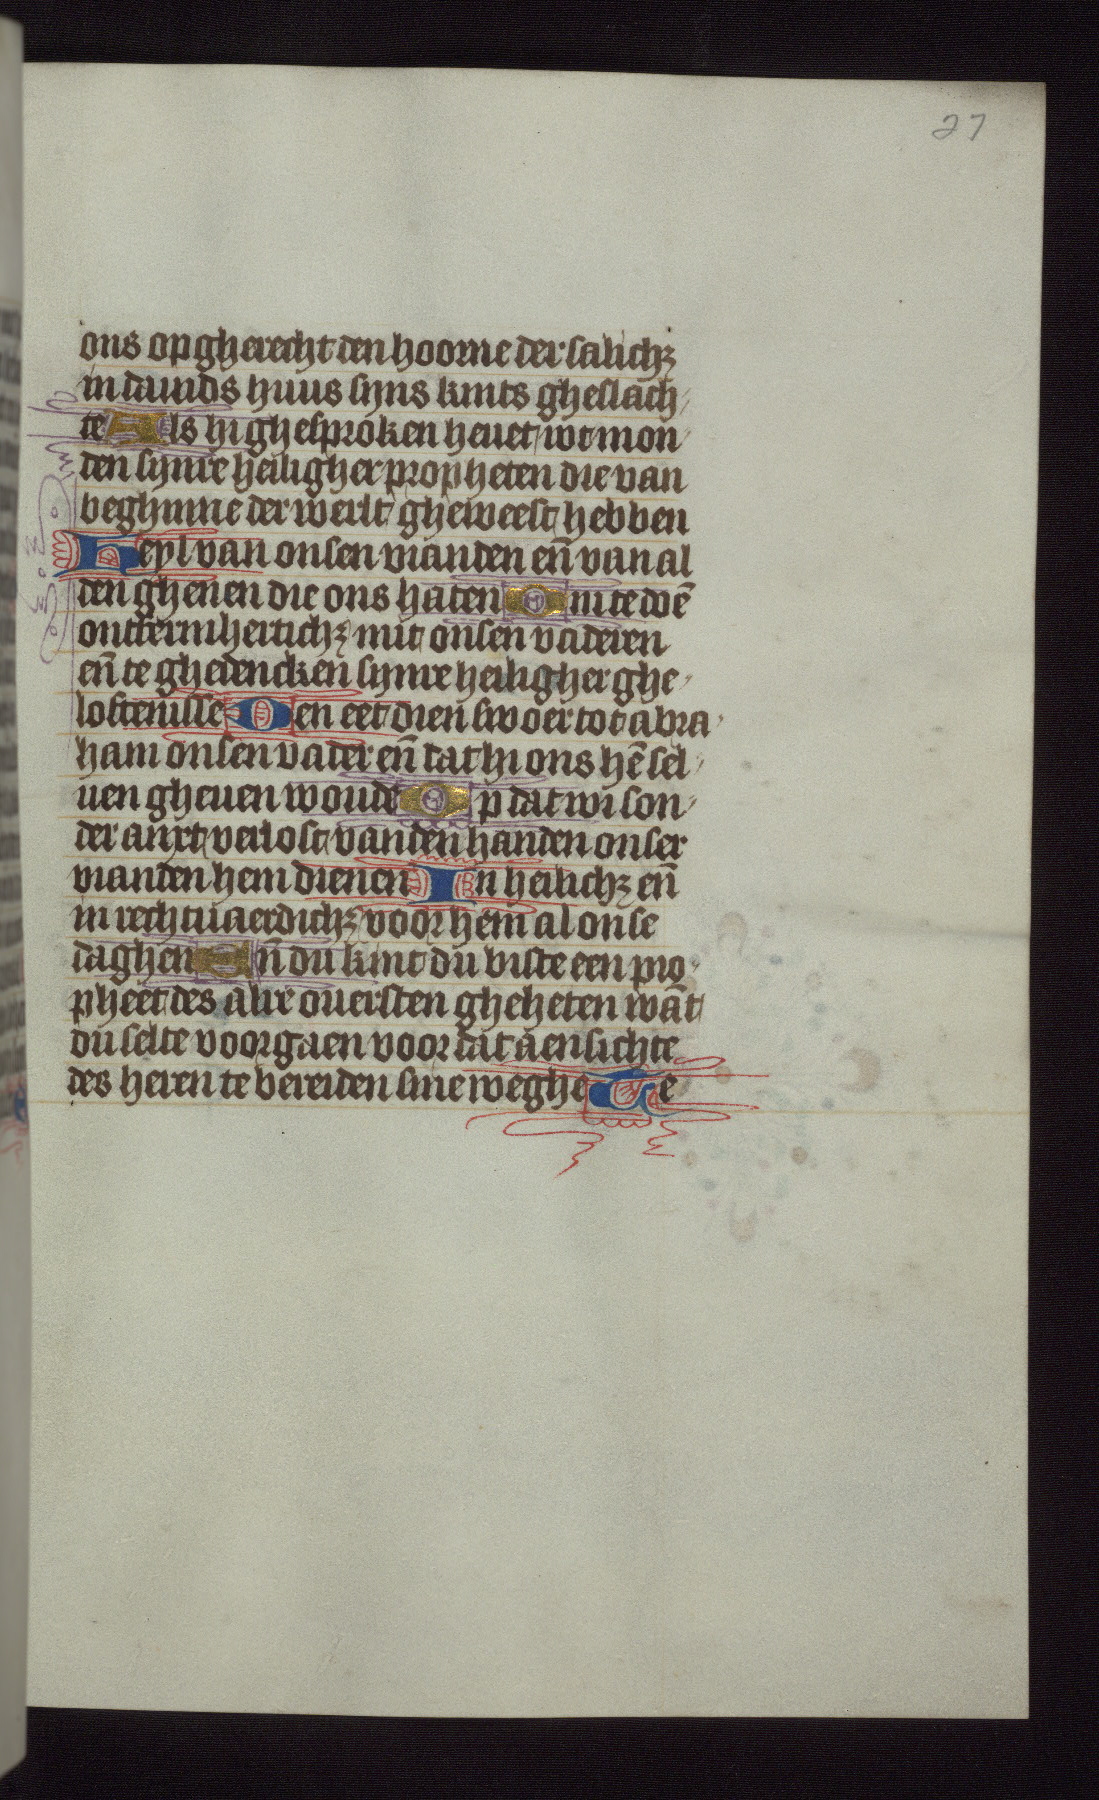 27
ons opgherecht den hoorne der salichꝫ
in dauids huus sijns kints gheslach
te Als hi ghesproken heuet wt mon
den sijnre heiligher propheten die van
beghinne der werlt gheweest hebben
Heyl van onsen vianden en̄ van al
den ghenen die ons haten Om te doē
ontfermherticheꝫ mit onsen vaderen
en̄ te ghedencken sijnre heiligher ghe
loftenisse Den eet dien swoer tot abra
ham onsen vader en̄ dat hi ons hē sel
uen gheuen woude Op dat wi son
der anxt verlost van den handen onser
vianden hem dienen In heilichꝫ en̄
in rechtuaerdichꝫ voor hem al onse
daghen En̄ du kint du biste een pro
pheet des alre ouersten gheheten wāt
du selte voorgaen voor dat aensichte
des heren te bereiden sine weghe Te